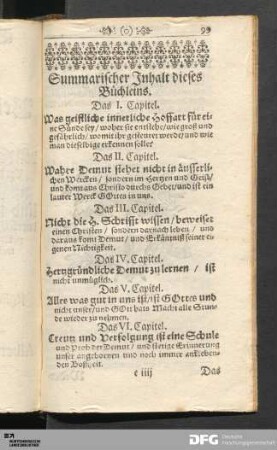 (0) 99
Summarischer Inhalt dieses
Büchleins.
Das I. Capitel.
Was geistliche innerliche Hoffart für ei
ne Sünde sey / woher sie entstehe / wie groß und
gefährlich / womit ihr gesteuret werde / und wie
man dieselbige erkennen solle?
Das II. Capitel.
Wahre Demut stehet nicht in äusserli-
chen Wercken / sondern im Hertzen und Geist /
und kom̄t aus Christo durchs Gebet / und ist ein
lauter Werck GOttes in uns.
Das III. Capitel.
Nicht die H. Schrifft wissen / beweiset
einen Christen / sondern darnach leben / und
daraus kom̄t Demut / und Erkäntniß seiner ei-
genen Nichtigkeit.
Das IV. Capitel.
Hertzgründliche Demut zu lernen / ist
nicht unmüglich.
Das V. Capitel.
Alles was gut in uns ist / ist GOttes und
nicht unser / und GOtt hat Macht alle Stun-
de wieder zu nehmen.
Das VI. Capitel.
Creutz und Verfolgung ist eine Schule
und Prob der Demut / und stetige Erinnerung
unser angebornen und noch immer ankleben-
den Boßheit.
e iiij Das
DFG Deutsche
Forschungsgemeinschaft